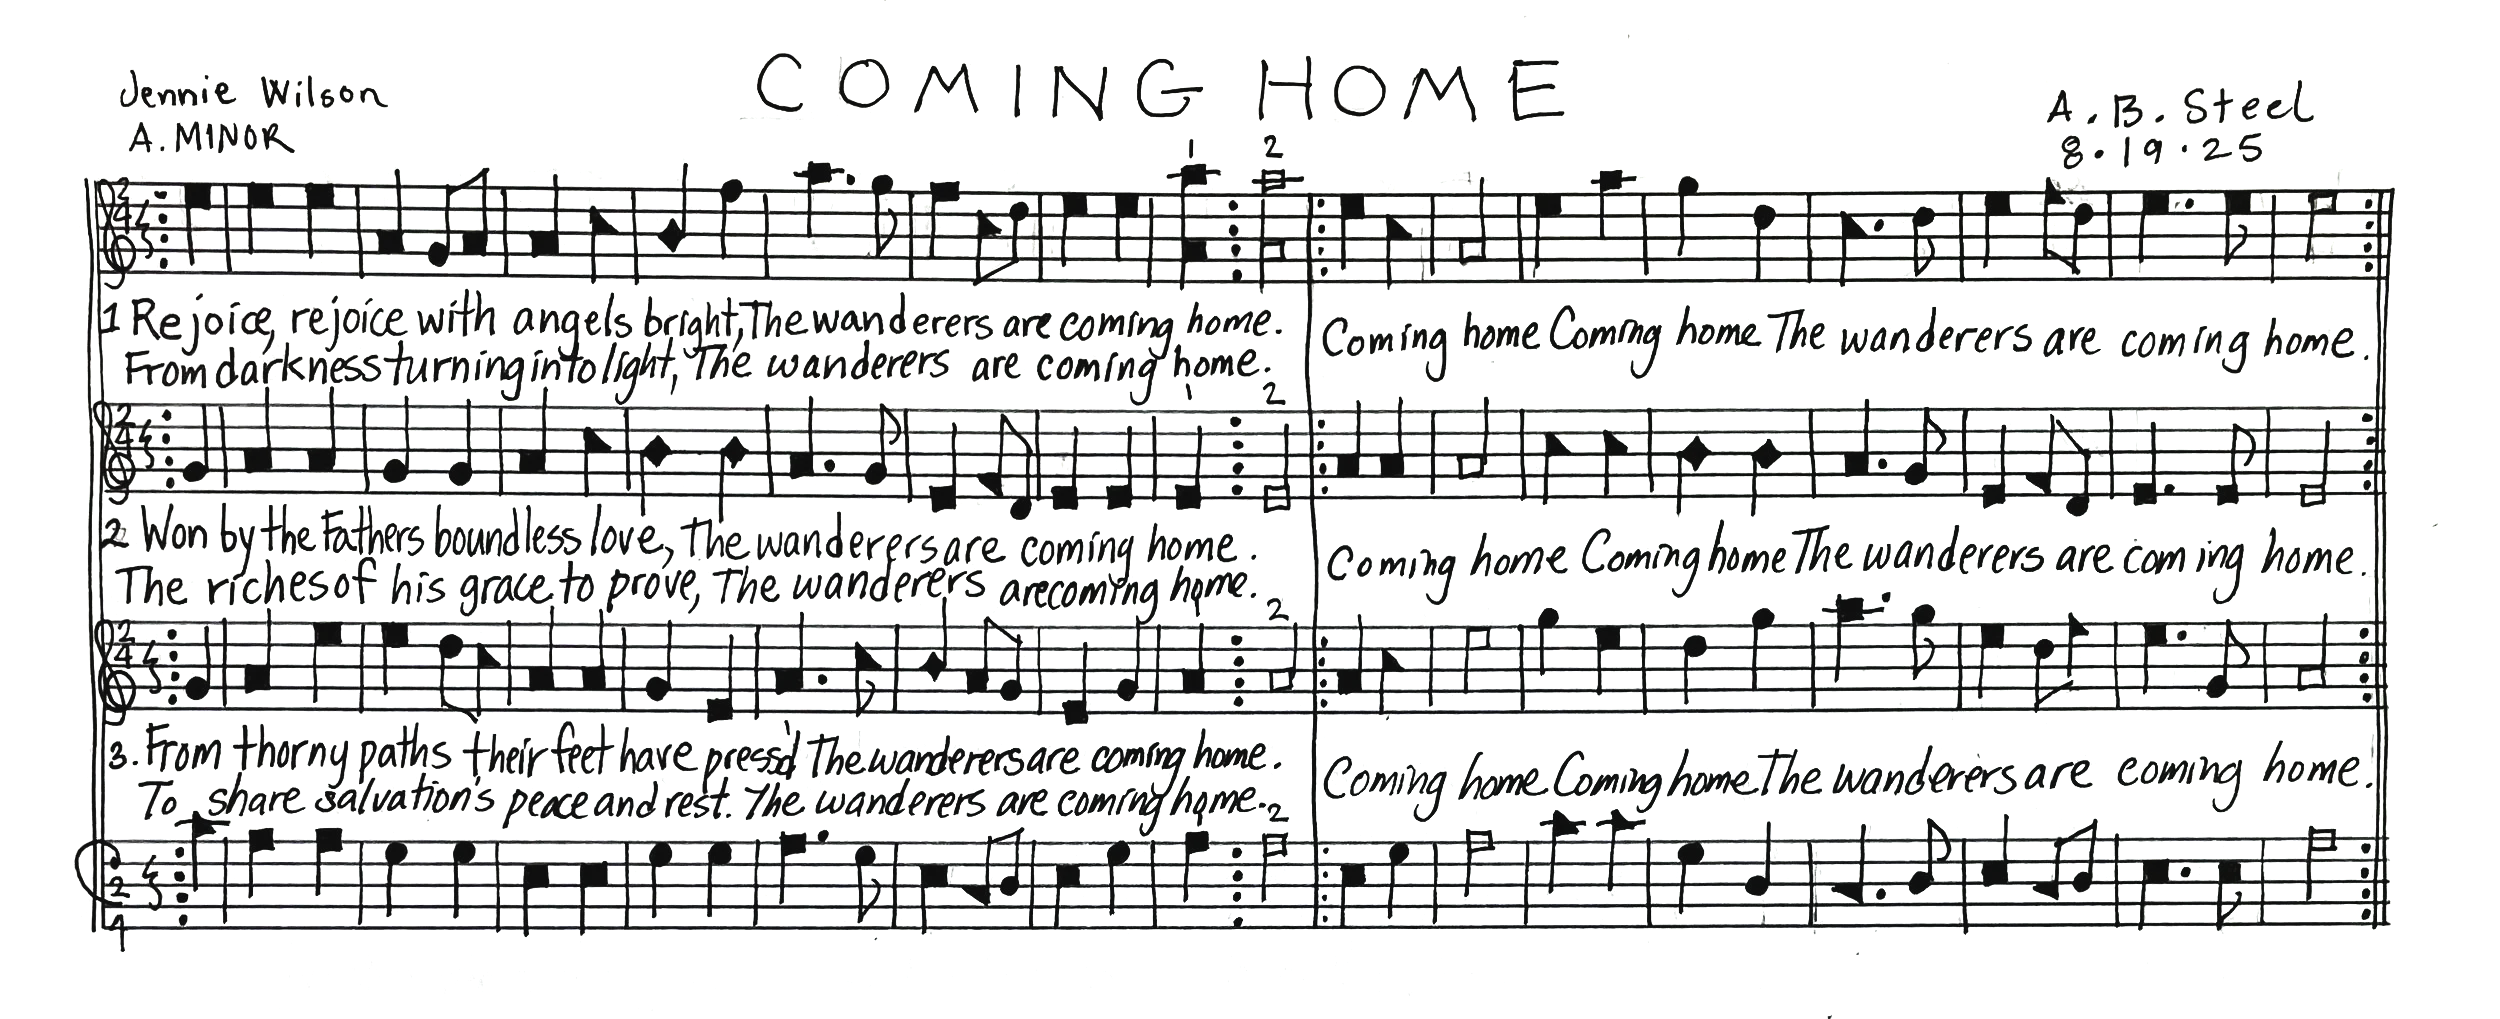 COMING HOME
Jennie Wilson
A. MINOR
A. B. Steel
8.19.25
1 2
2 4
1 Rejoice, rejoice with angels bright, The wanderers are coming home. Coming home Coming home The wanderers are coming home.
From darkness turning into light, The wanderers are coming home.
1 2
2 4
2 Won by the Fathers boundless love, The wanderers are coming home. Coming home Coming home The wanderers are coming home.
The riches of his grace to prove, The wanderers are coming home.
1 2
2 4
3. From thorny paths their feet have press'd The wanderers are coming home. Coming home Coming home The wanderers are coming home.
To share salvation's peace and rest. The wanderers are coming home.
1 2
2 4